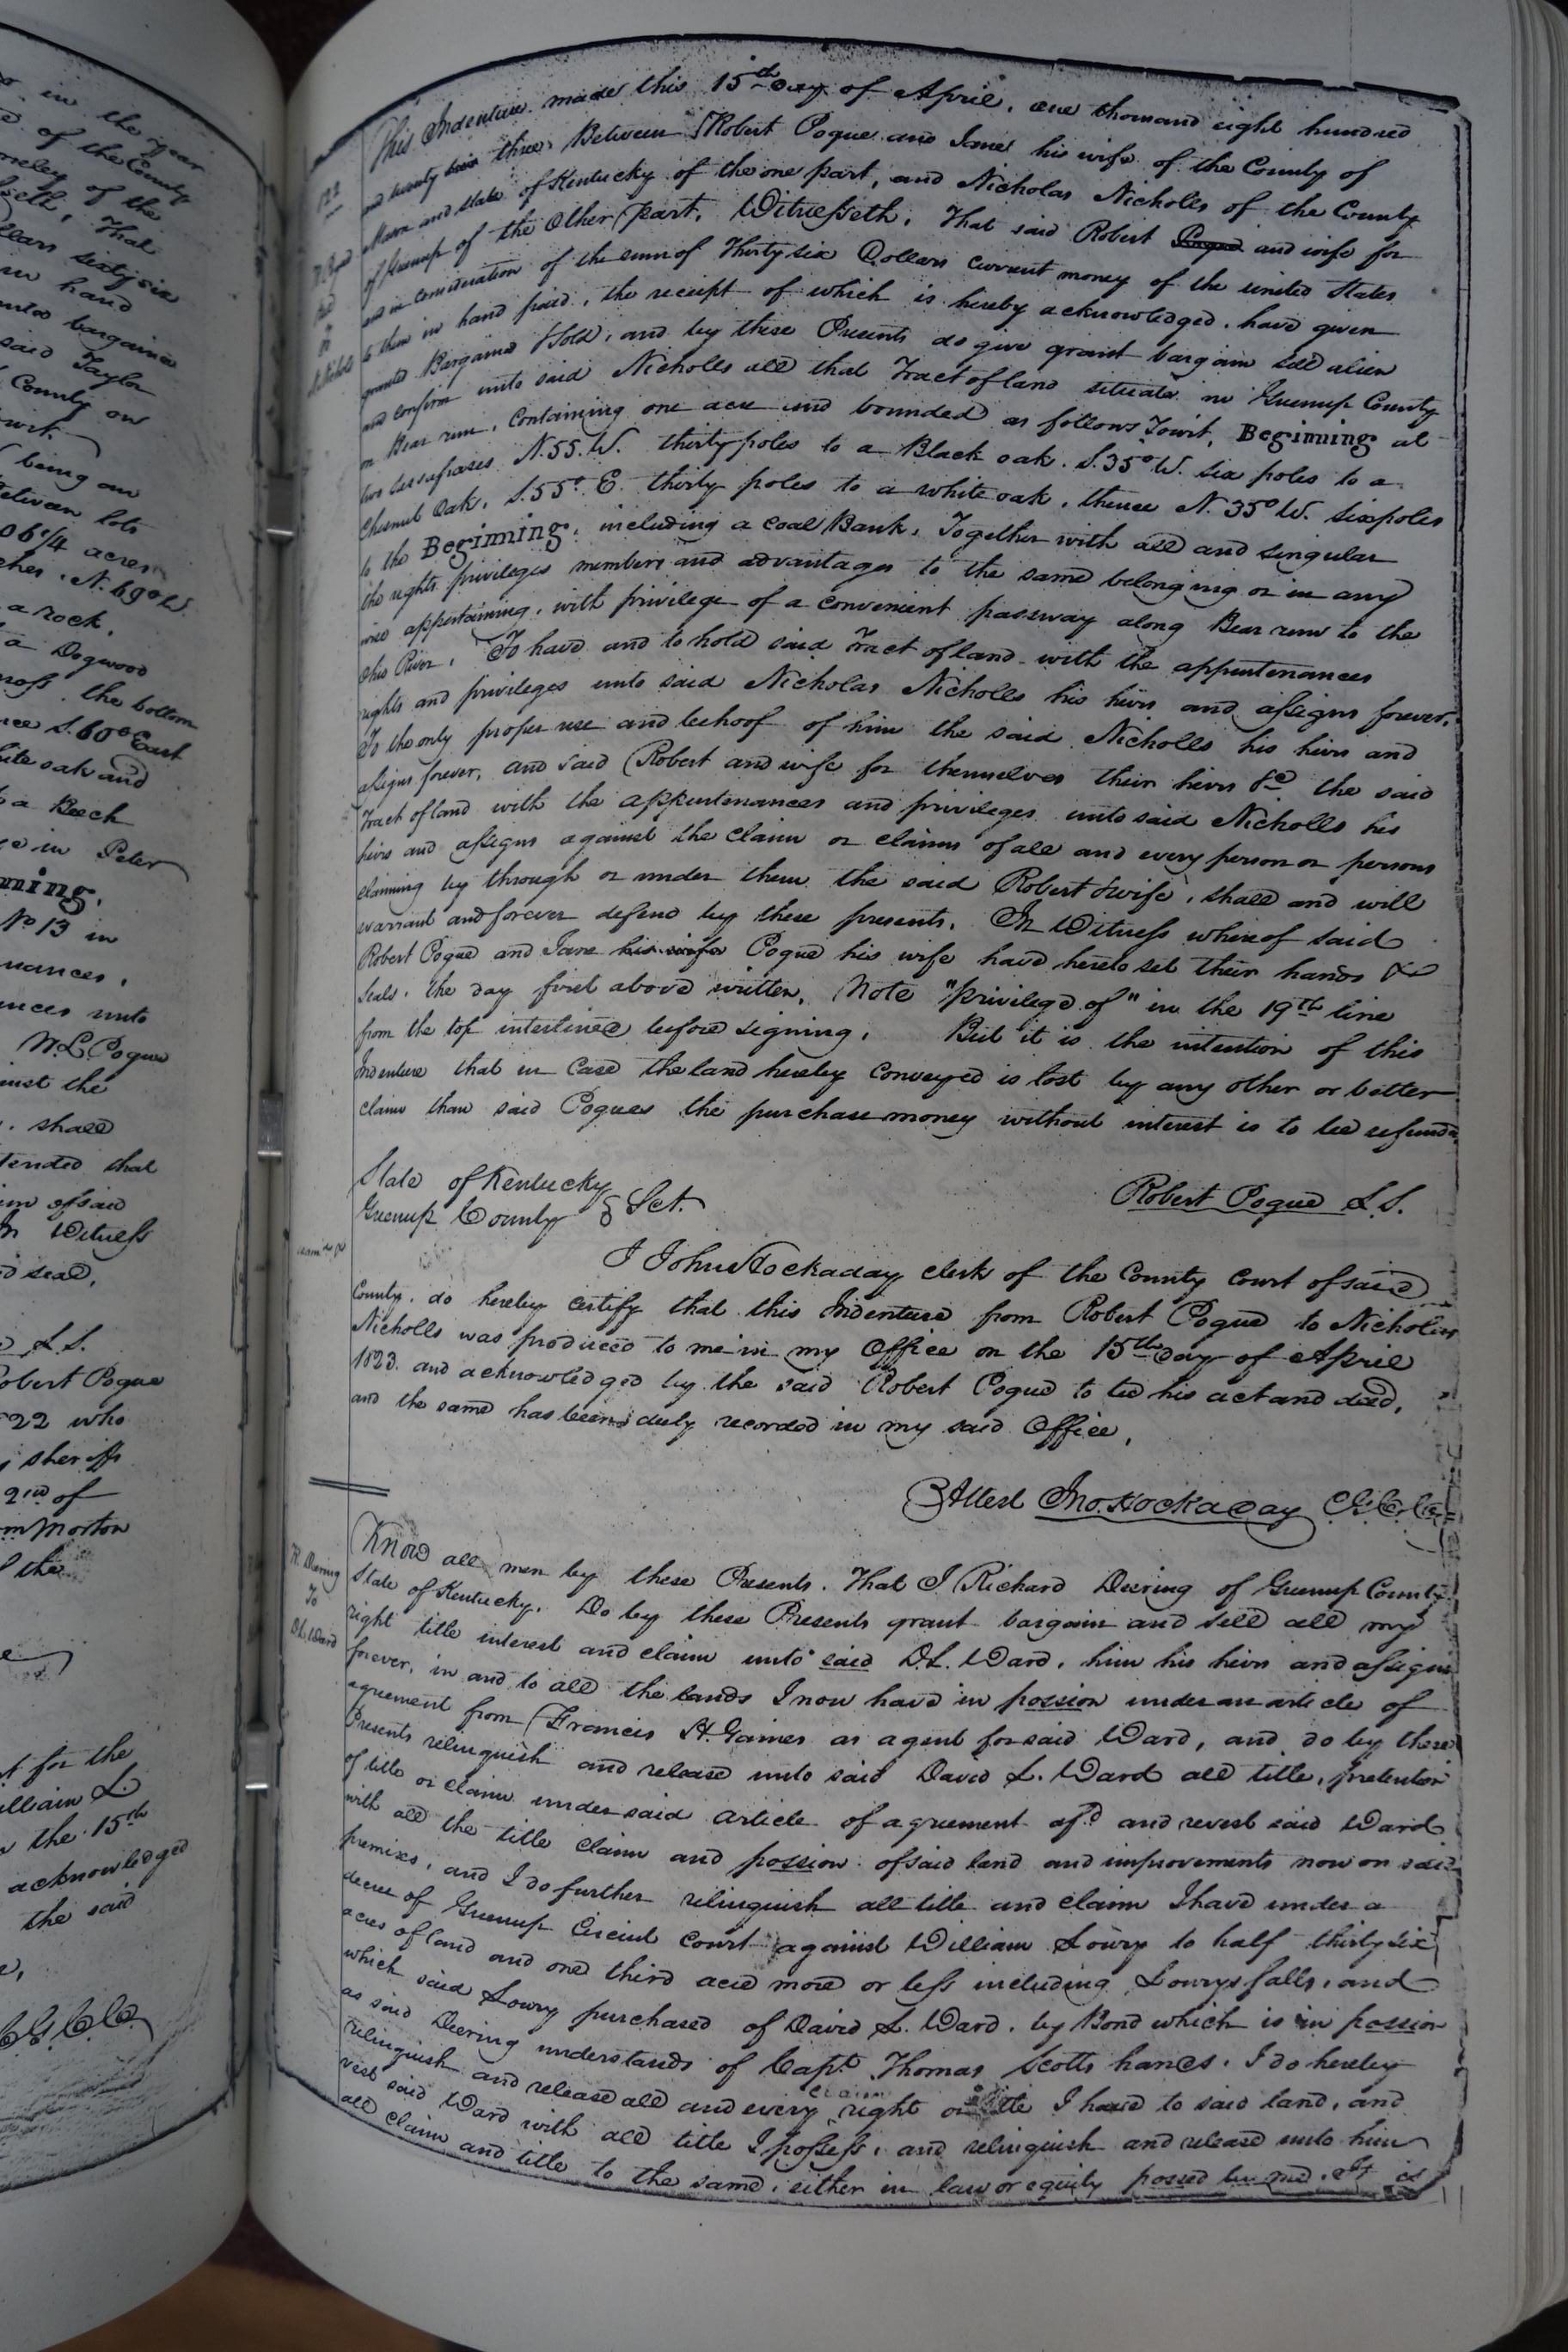 in the year
of the County
of the
That
Dollars sixty six
in hand
bargained
said Taylor
County on
being an
between lots
acres
N. 69° W
a rock,
a Dogwood
the bottom
S. 60° East
white oak and
to a Beech
in Peter
No 13 in
unto
W. L. Pogue
against the
shall
intended that
of said
In Witness
seal,
L.S.
Robert Pogue
22 who
sheriff
of
Morton
the
for the
William L
the 15th
acknowledged
the said
C G C C
This Indenture made this 15th day of April, one thousand eight hundred
and twenty three, Between Robert Pogue and Jane his wife of the County of
Mason and state of Kentucky of the one part, and Nicholas Nicholls of the County
of Greenup of the Other part, Witnesseth, That said Robert Pogue and wife for
and in consideration of the sum of Thirty six Dollars current money of the united States
to them in hand paid, the receipt of which is hereby acknowledged, have given
granted Bargained & Sold, and by these Presents do give grant bargain sell alien
and confirm unto said Nicholls all that Tract of land situate in Greenup County
on Bear run, Containing one acre and bounded as follows Towit, Beginning at
two sassafrases N. 55. W. thirty poles to a Black oak. S. 35° W. six poles to a
Chesnut Oak, S. 55° E. thirty poles to a white oak, thence N. 35° W. six poles
to the Beginning, including a coal Bank, Together with all and singular
the rights privileges members and advantages to the same belonging or in any
wise appertaining, with privilege of a convenient passway along Bear run to the
Ohio River, To have and to hold said Tract of land with the appurtenances
rights and privileges unto said Nicholas Nicholls his heirs and assigns forever,
To the only proper use and behoof of him the said Nicholls his heirs and
assigns forever, and said Robert and wife for themselves their heirs &c the said
Tract of land with the appurtenances and privileges unto said Nicholls his
heirs and assigns against the claim or claims of all and every person or persons
claiming by through or under them the said Robert & wife, shall and will
warrant and forever defend by these presents, In Witness whereof said
Robert Pogue and Jane his wife Pogue his wife have hereto set their hands &
Seals, the day first above written, Note "privilege of" in the 19th line
from the top interlined before signing, But it is the intention of this
Indenture that in Case the land hereby conveyed is lost by any other or better
claim than said Pogues the purchase money without interest is to be refunded
State of Kentucky
Greenup County } Sct.
Robert Pogue L.S.
I John Hockaday clerk of the County Court of said
County, do hereby certify that this Indenture from Robert Pogue to Nicholas
Nicholls was produced to me in my Office on the 15th day of April
1823 and acknowledged by the said Robert Pogue to be his act and deed,
and the same has been duly recorded in my said Office,
Attest Jno. Hockaday C G C C
R. Deering
To
D. L. Ward
Know all men by these Presents. That I Richard Deering of Greenup County
State of Kentucky, Do by these Presents grant bargain and sell all my
right title interest and claim unto said D. L. Ward, him his heirs and assigns
forever, in and to all the lands I now have in possion under an article of
agreement from Francis H. Gaines as agent for said Ward, and do by these
Presents relinquish and release unto said David L. Ward all title, pretention
of title or claim under said article of agreement afd and revest said Ward
with all the title claim and possion of said land and improvements now on said
premises, and I do further relinquish all title and claim I have under a
decree of Greenup Circuit Court against William Lowry to half thirty six
acres of land and one third acre more or less including Lowrys falls, and
which said Lowry purchased of David L. Ward, by Bond which is in possion
as said Deering understands of Capt. Thomas Scotts hands, I do hereby
relinquish and release all and every claim right or title I have to said land, and
vest said Ward with all title I possess, and relinquish and release unto him
all claim and title to the same, either in law or equity possed by me,